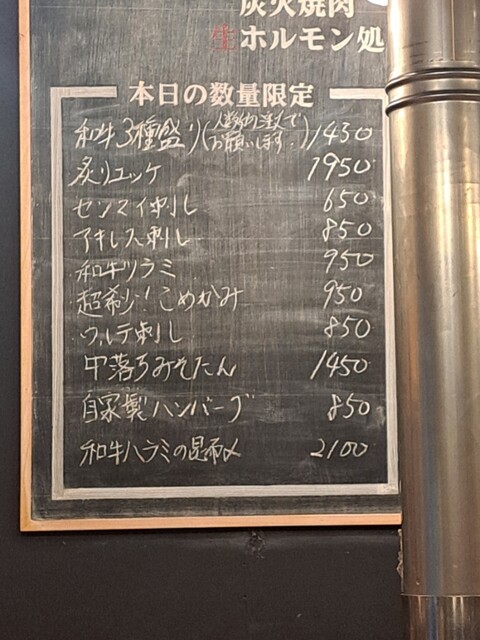 炭火焼肉
生ホルモン処
本日の数量限定
和牛3種盛り(人数分注文でお願いします。) 1430
炙りユッケ 1950
センマイ刺し 650
アキレス刺し 850
和牛ツラミ 950
超希少!こめかみ 950
ウルテ刺し 850
中落ちみそたん 1450
自家製ハンバーグ 850
和牛ハラミの昆布〆 2100